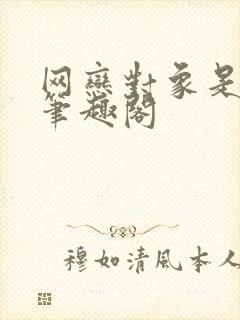 网戀對象是
筆趣閣
穆如清風本人